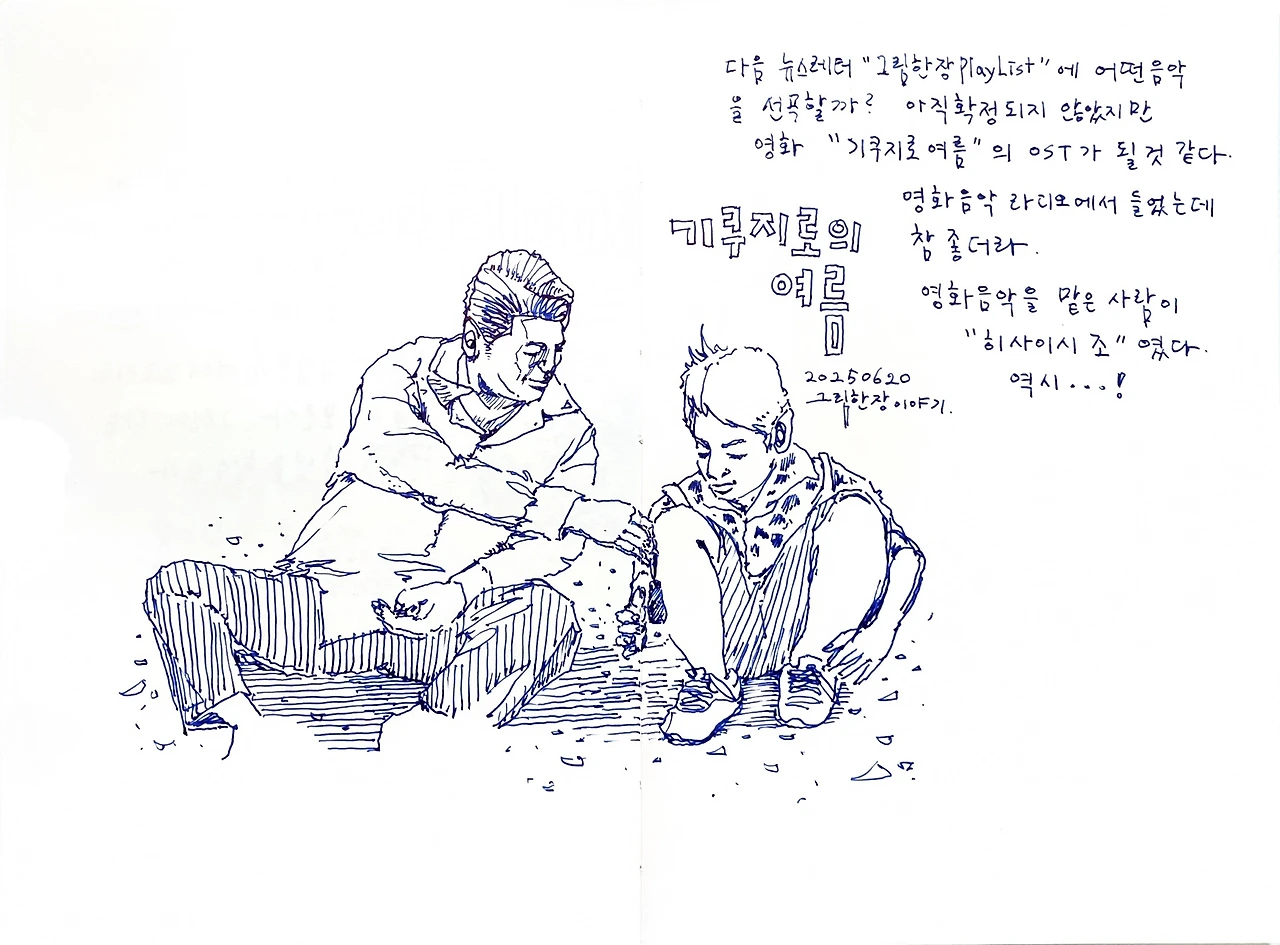 다음 뉴스레터 "그림한장 PlayList"에 어떤음악
을 선곡할까? 아직확정되지 않았지만
영화 "기쿠지로여름"의 OST가 될것 같다.
명화음악 라디오에서 들었는데
참 좋더라.
영화음악을 맡은 사람이
"히사이시 조"였다.
역시...!
기쿠지로의
여름
20250620
그림한장이야기.